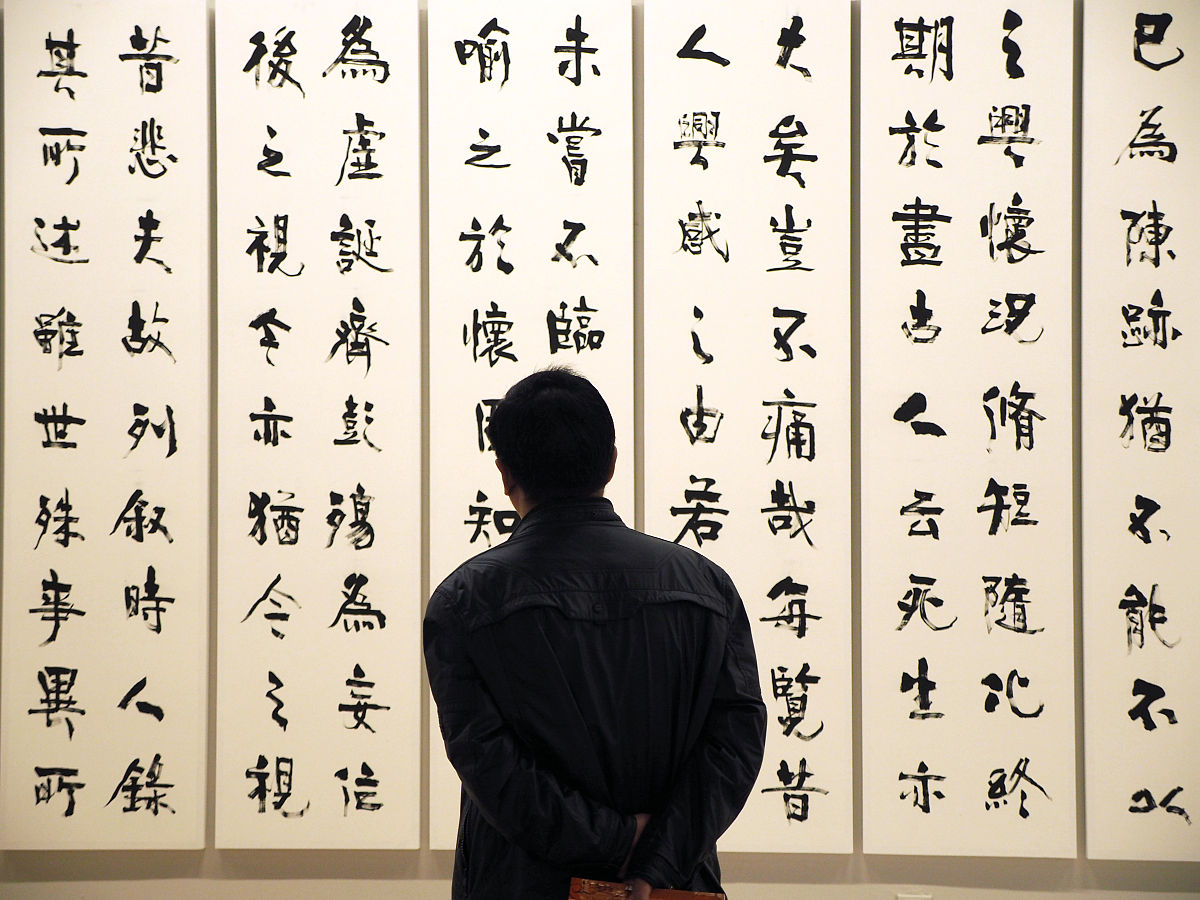 已為陳跡猶不能不以
之興懷況脩短隨化終
期於盡古人云死生亦
大矣豈不痛哉每覽昔
人興感之由若
未嘗不臨
喻之於懷知
為虛誕齊彭殤為妄作
後之視今亦猶今之視
昔悲夫故列叙時人錄
其所述雖世殊事異所